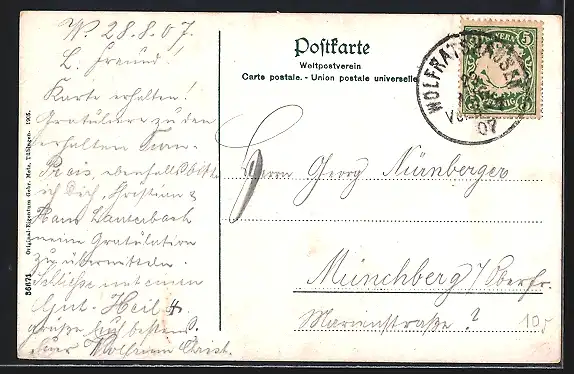 W. 28.8.07.
L. Freund!
Karte erhalten!
Gratuliere zu den
erhalten Turn-
Preis, ebenfalls bitte
ich Dich, Christian &
Hans Lauterbach
meine Gratulation
zu übermitteln.
Schließe mit einem
Gut-Heil &
grüße Euch bestens.
Euer Wolfram Christ.
36671 Original-Eigentum Gebr. Metz, Tübingen. 1905.
Postkarte
Weltpostverein
Carte postale. - Union postale universelle
BAYERN
5
WOLFRATSHAUSEN
07
Herrn Georg Nürnberger
Münchberg / Oberfr.
Marienstraße ?
10,-